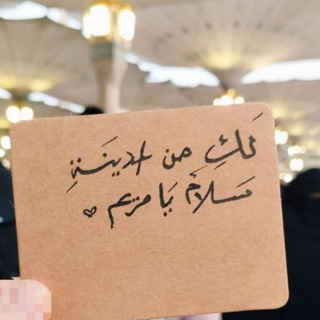 لَكِ من المدينَةِ
سَلامٌ يَا مريم ♡